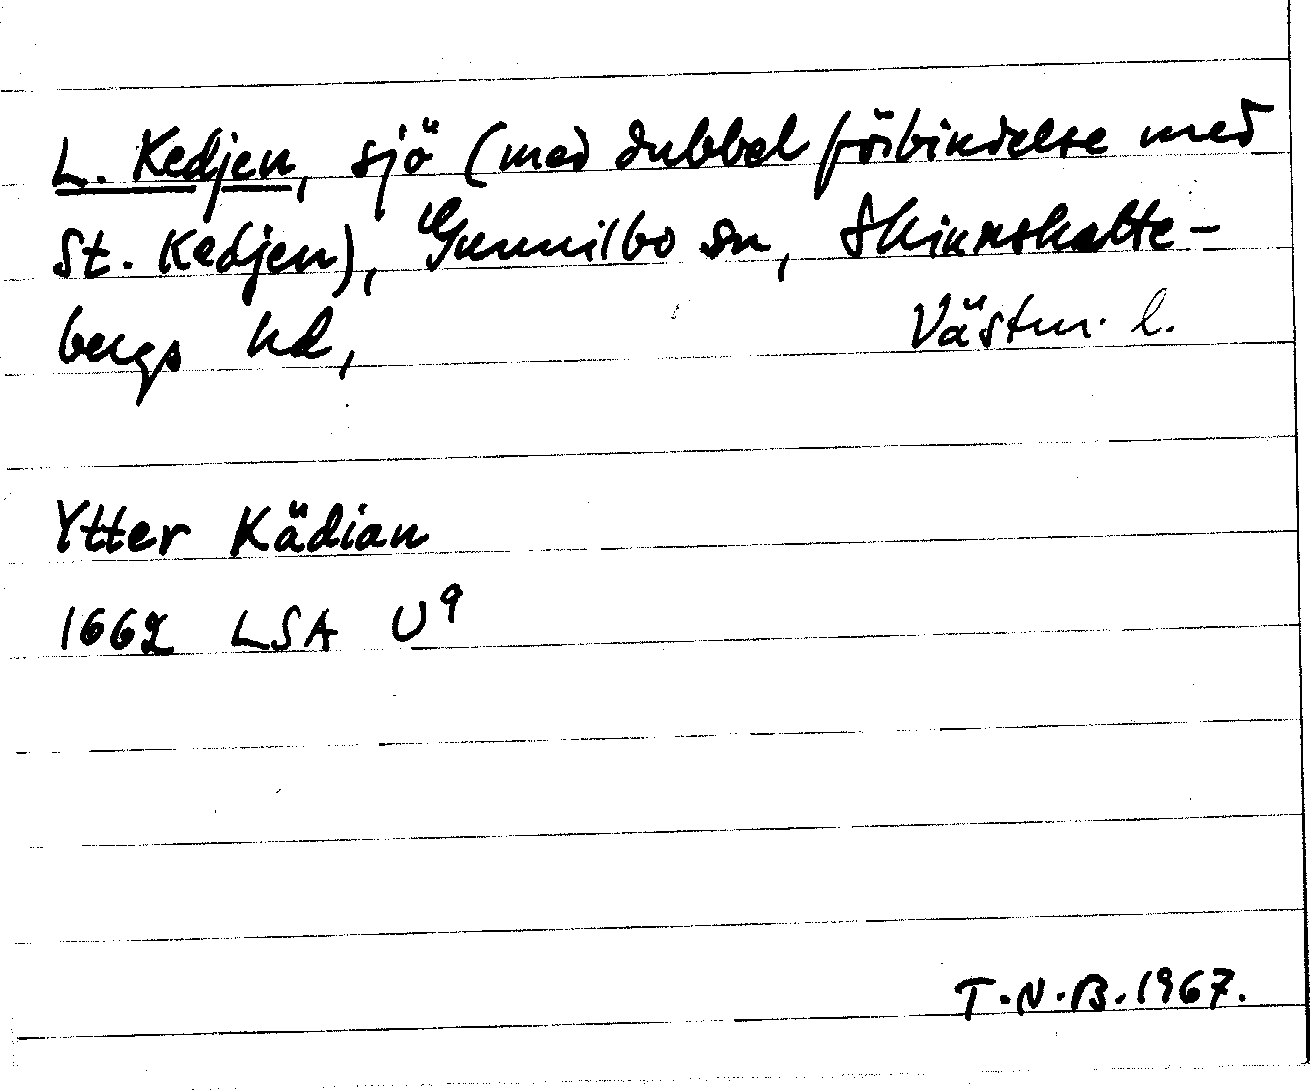 L. Kedjen, sjö (med dubbel förbindelse med
St. Kedjen), Gunnilbo sn, Skinnskatte-
bergs hd, Västm. l.
Ytter Kädian
1662 LSA U9
T.N.B. 1967.